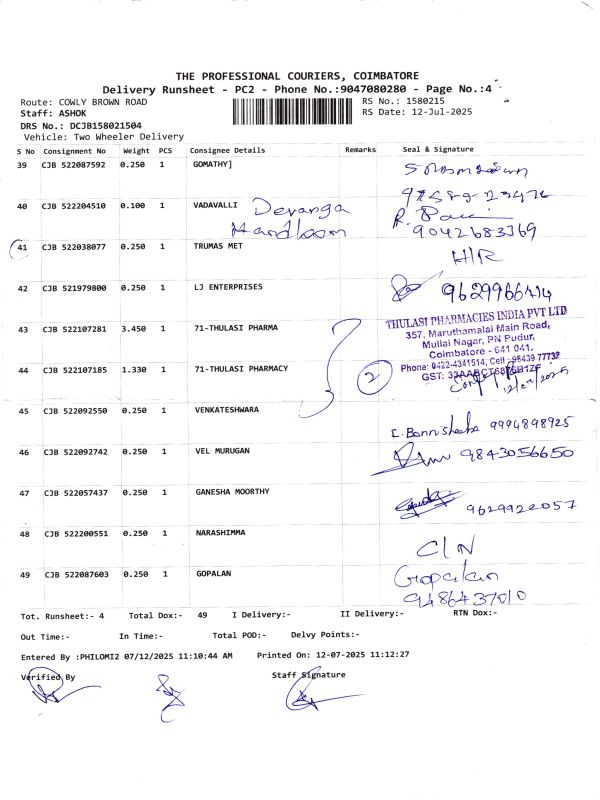 THE PROFESSIONAL COURIERS, COIMBATORE
Delivery Runsheet - PC2 - Phone No.:9047080280 - Page No.:4
Route: COWLY BROWN ROAD RS No.: 1580215
Staff: ASHOK RS Date: 12-Jul-2025
DRS No.: DCJB158021504
Vehicle: Two Wheeler Delivery
S No Consignment No Weight PCS Consignee Details Remarks Seal & Signature
39 CJB 522087592 0.250 1 GOMATHY]
40 CJB 522204510 0.100 1 VADAVALLI Devanga
Handloom 9042683369
41 CJB 522038077 0.250 1 TRUMAS MET
H/R
42 CJB 521979800 0.250 1 LJ ENTERPRISES
THULASI PHARMACIES INDIA PVT LTD
43 CJB 522107281 3.450 1 71-THULASI PHARMA 357, Maruthamalai Main Road,
Mullai Nagar, PN Pudur,
Coimbatore - 641 041.
44 CJB 522107185 1.330 1 71-THULASI PHARMACY 2 Phone: 0422-4341514, Cell: 98439 77732
GST:
12/07/2025
45 CJB 522092550 0.250 1 VENKATESHWARA
9994898925
46 CJB 522092742 0.250 1 VEL MURUGAN 9843056650
47 CJB 522057437 0.250 1 GANESHA MOORTHY
9629922057
48 CJB 522200551 0.250 1 NARASHIMMA
C/N
49 CJB 522087603 0.250 1 GOPALAN Gopalan
9486437010
Tot. Runsheet:- 4 Total Dox:- 49 I Delivery:- II Delivery:- RTN Dox:-
Out Time:- In Time:- Total POD:- Delvy Points:-
Entered By :PHILOMI2 07/12/2025 11:10:44 AM Printed On: 12-07-2025 11:12:27
Verified By Staff Signature